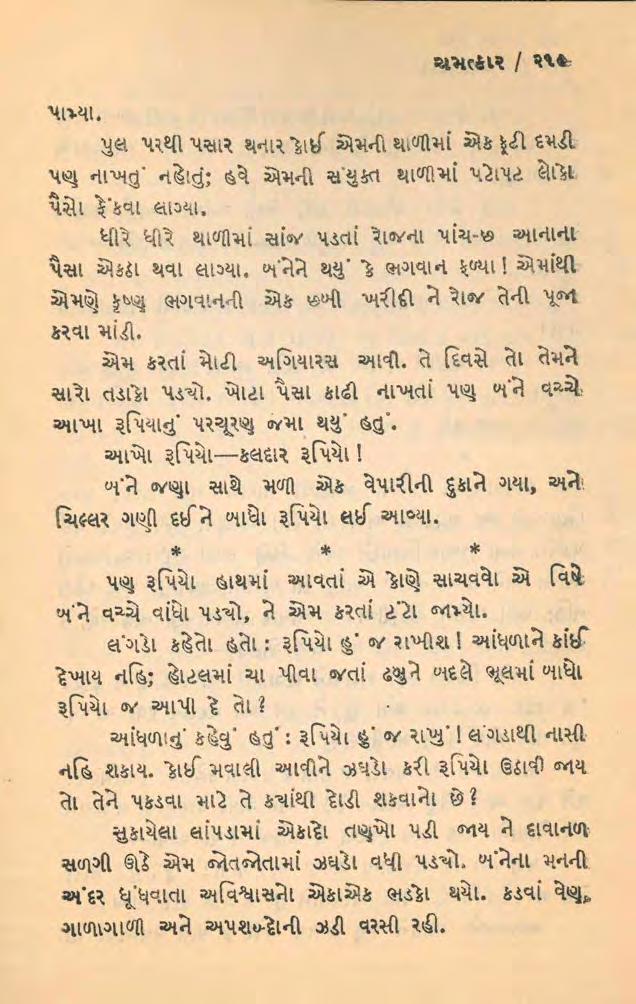 ચમત્કાર / ૨૧૯
પામ્યા.
પુલ પરથી પસાર થનાર કોઈ એમની થાળીમાં એક ફૂટી દમડી
પણ નાખતું નહોતું; હવે એમની સંયુક્ત થાળીમાં પટોપટ લોકો
પૈસો ફેંકવા લાગ્યા.
ધીરે ધીરે થાળીમાં સાંજ પડતાં રોજના પાંચ-છ આનાના
પૈસા એકઠા થવા લાગ્યા. બંનેને થયું કે ભગવાન ફળ્યા! એમાંથી
એમણે કૃષ્ણ ભગવાનની એક છબી ખરીદી ને રોજ તેની પૂજા
કરવા માંડી.
એમ કરતાં મોટી અગિયારસ આવી. તે દિવસે તો તેમને
સારો તડાકો પડ્યો. ખોટા પૈસા કાઢી નાખતાં પણ બંને વચ્ચે
આખા રૂપિયાનું પરચૂરણ જમા થયું હતું.
આખો રૂપિયો—કલદાર રૂપિયો!
બંને જણા સાથે મળી એક વેપારીની દુકાને ગયા, અને
ચિલ્લર ગણી દઈને બાધો રૂપિયો લઈ આવ્યા.
* * *
પણ રૂપિયો હાથમાં આવતાં એ કોણે સાચવવો એ વિષે
બંને વચ્ચે વાંધો પડ્યો, ને એમ કરતાં ટંટો જામ્યો.
લંગડો કહેતો હતો : રૂપિયો હું જ રાખીશ! આંધળાને કાંઈ
દેખાય નહિ; હોટલમાં ચા પીવા જતાં ઢબુને બદલે ભૂલમાં બાધો
રૂપિયો જ આપી દે તો?
આંધળાનું કહેવું હતું : રૂપિયો હું જ રાખું! લંગડાથી નાસી
નહિ શકાય. કોઈ મવાલી આવીને ઝઘડો કરી રૂપિયો ઉઠાવી જાય
તો તેને પકડવા માટે તે ક્યાંથી દોડી શકવાનો છે?
સુકાયેલા લાંપડામાં એકાદો તણખો પડી જાય ને દાવાનળ
સળગી ઊઠે એમ જોતજોતામાં ઝઘડો વધી પડ્યો. બંનેના મનની
અંદર ધૂંધવાતા અવિશ્વાસનો એકાએક ભડકો થયો. કડવાં વેણ,
ગાળાગાળી અને અપશબ્દોની ઝડી વરસી રહી.